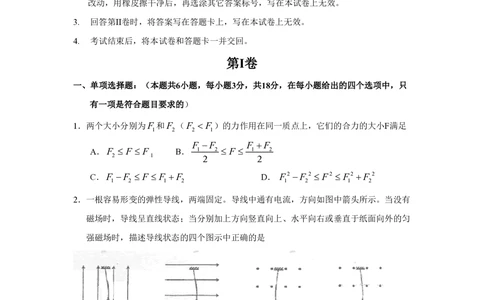 改动，用橡皮擦干净后，再选涂其它答案标号，写在本试卷上无效。
3. 回答第II卷时，将答案写在答题卡上，写在本试卷上无效。
4. 考试结束后，将本试卷和答题卡一并交回。
第I卷
一、单项选择题：（本题共6小题，每小题3分，共18分，在每小题给出的四个选项中，只
有一项是符合题目要求的）
1．两个大小分别为F₁和F₂（F₂<F₁）的力作用在同一质点上，它们的合力的大小F满足
A．F₂≤F≤F₁ B．(F₁−F₂)/2≤F≤(F₁+F₂)/2
C．F₁−F₂≤F≤F₁+F₂ D．F₁²−F₂²≤F²≤F₁²+F₂²
2．一根容易形变的弹性导线，两端固定。导线中通有电流，方向如图中箭头所示。当没有
磁场时，导线呈直线状态；当分别加上方向竖直向上、水平向右或垂直于纸面向外的匀
强磁场时，描述导线状态的四个图示中正确的是